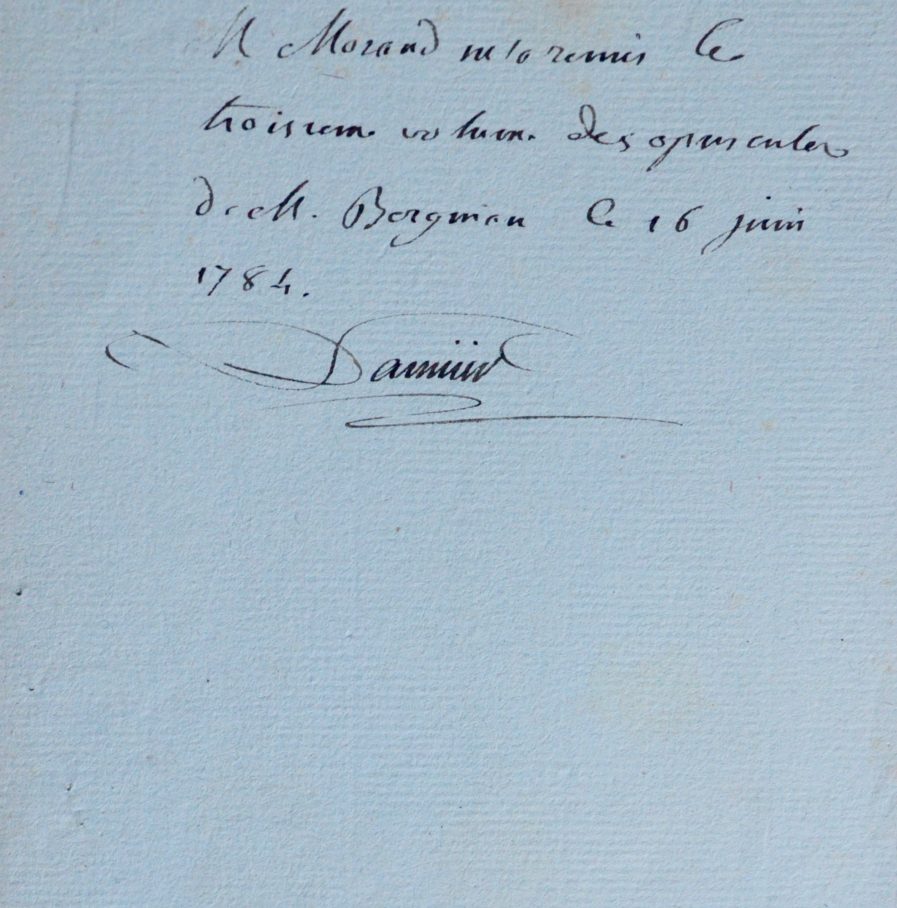 M Morand m'a remis le
troisieme volume des opuscules
de M. Bergman le 16 juin
1784.